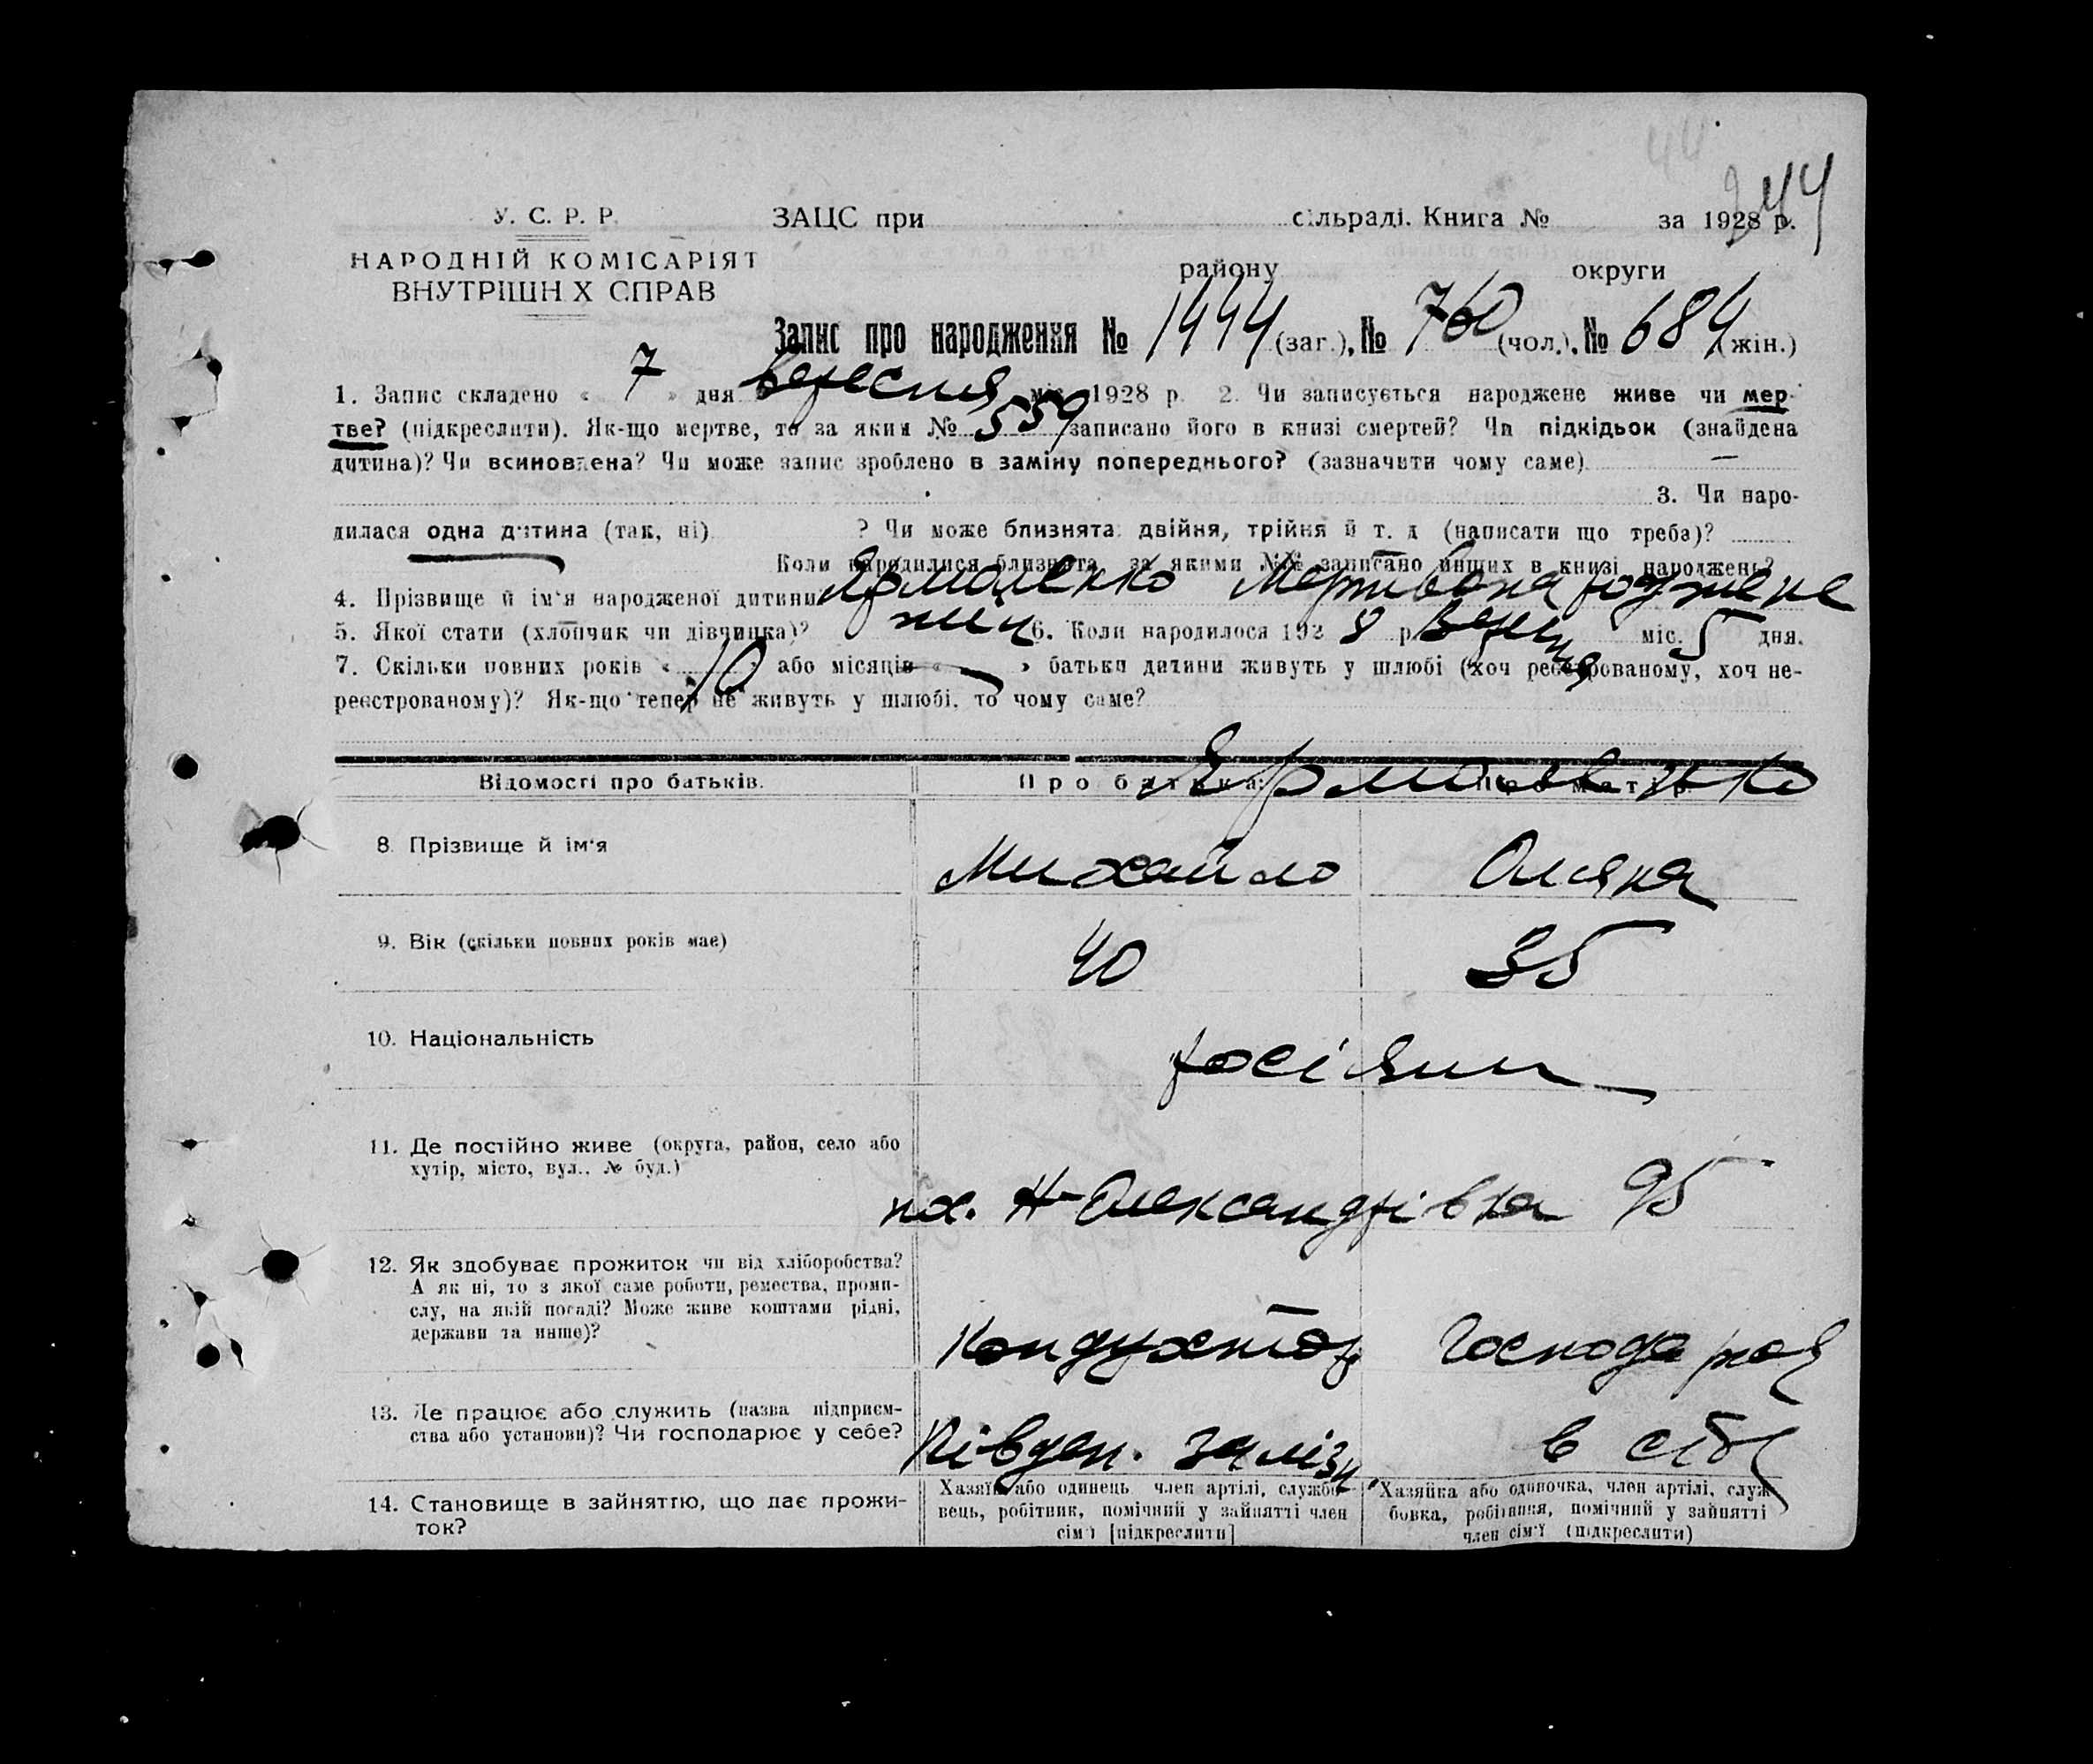 44
244
У. С. Р. Р.
ЗАЦС при сільраді. Книга № за 1928 р.
НАРОДНІЙ КОМІСАРІЯТ
ВНУТРІШН Х СПРАВ
району округи
Запис про народження № 1444 (заг.), № 760 (чол.), № 684 (жін.)
1. Запис складено « 7 » дня вересня міс. 1928 р. 2. Чи записується народжене живе чи мер-
тве? (підкреслити). Як-що мертве, то за яким № 559 записано його в книзі смертей? Чи підкідьок (знайдена
дитина)? Чи всиновлена? Чи може запис зроблено в заміну попереднього? (зазначити чому саме) —
3. Чи наро-
дилася одна дитина (так, ні) ? Чи може близнята: двійня, трійня й т. д (написати що треба)?
Коли народилися близнята, за якими №№ записано инших в книзі народжень?
4. Прізвище й ім'я народженої дитини Ярмоленко Мертвонароджене
5. Якої стати (хлопчик чи дівчинка)? жін 6. Коли народилося 192 8 р. Вересня міс. 5 дня.
7. Скільки повних років « 10 » або місяців « — » батьки дитини живуть у шлюбі (хоч реєстрованому, хоч не-
реєстрованому)? Як-що тепер не живуть у шлюбі, то чому саме?
Відомості про батьків. Про батька: Про матір
Ярмоленко
8. Прізвище й ім'я Михайло Оляна
9. Вік (скільки повних років має) 40 35
10. Національність росіяни
11. Де постійно живе (округа, район, село або
хутір, місто, вул., № буд.)
Н-Олександрівка 95
12. Як здобуває прожиток чи від хліборобства?
А як ні, то з якої саме роботи, ремества, проми-
слу, на якій посаді? Може живе коштами рідні,
держави та инше)?
Кондуктор Господарює
13. Де працює або служить (назва підприєм-
ства або установи)? Чи господарює у себе?
Півден. залізн. в себе
14. Становище в зайняттю, що дає прожи-
ток?
Хазяїн або одинець, член артілі, службо-
вець, робітник, помічний у зайнятті член
сім'ї [підкреслити]
Хазяйка або одиночка, член артілі, служ-
бовка, робітниця, помічний у зайнятті
член сім'ї (підкреслити)